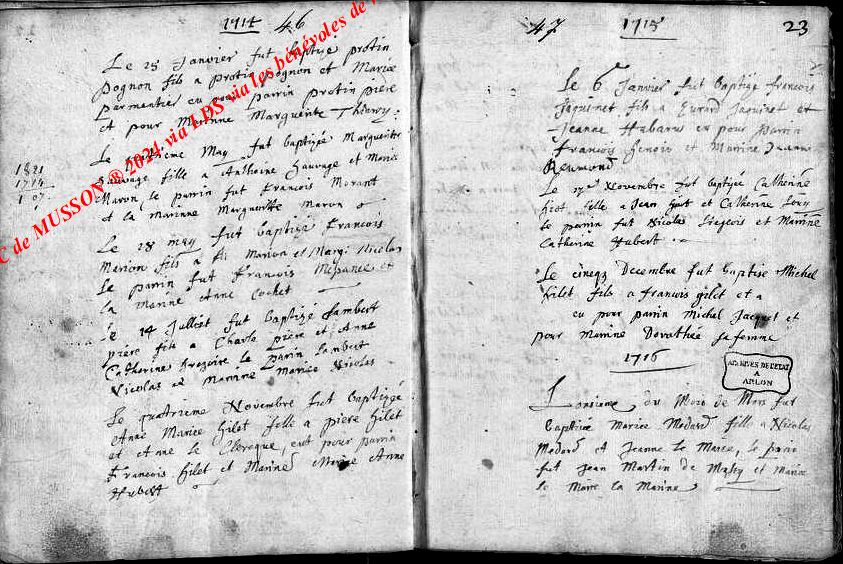 1714 46
Le 25 Janvier fut baptizé protin
pognon fils a protin pognon et Mariee
parmentier eu pour parin protin piere
et pour Marinne Marguerite Thierry
Le May fut baptizée Marguerite
Sauvage fille a Anthoine Sauvage et Marie
Maron, le parrin fut Francois Morant
et la Marinne Marguerite Maron
Le 28 may fut baptizé Francois
Marion fils a Marion et Margi Nicolas
Le parrin fut Francois et
la Marine Anne Cochet
Le 14 Julliet fut baptizé Lambert
piéré fils a Charle piére et Anne
Catherine Gregoire le parin Lambert
Nicolas et Marinne Mariee Nicolas
Le quatrieme Novembre fut baptizée
Anne Mariee Gilet fille a piere Gilet
et Anne le Clercque, eut pour parrin
Francois Gilet et Marinne Anne
Hubert
1821
1714
107
C de MUSSON ® 2024 via LDS via les bénévoles de
47 1715 23
Le 6 Janvier fut baptizé francois
Jaquinet fils a Jaquinet et
Jeanne Hubarus eu pour parrin
Francois Genois et Marine Jeanne
Reumond
Le Novembre fut baptizée Catherinne
fille a Jean et Catherine Lory
le parrin fut Nicolas Liegeois et Marinne
Catherine Hubert
Le cineq Decembre fut baptise Michel
Gilet fils a francois gilet et a
eu pour parin Michel Jacquet et
pour Marinne Dorothée sa femme
1716
ARCHIVES DE L'ETAT
A
ARLON
Lonsieme du Mois de Mars fut
baptizee Mariee Modard fille a Nicolas
Modard et Jeanne le Maire, le parin
fut Jean Martin de et Mariee
le Maire la Marinne